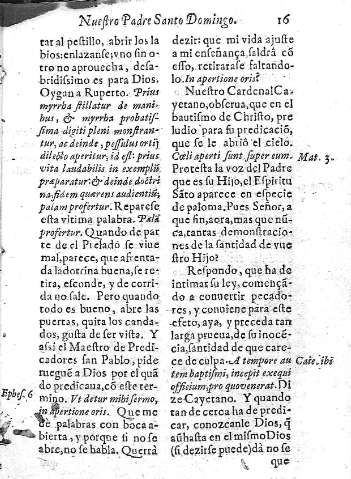 Nuestro Padre Santo Domingo. 16
tar al pestillo, abrir los la
bios: enlazanse; y no sin o-
tro no aprouecha, desa-
bridissimo es para Dios.
Oygan a Ruperto. Prius
myrrha stillatur de mani
bus, & myrrha probatis-
sima digiti pleni monstran
tur, ac deinde, pessulus ortij
dilecto aperitur, id est: prius
vita laudabilis in exemplũ
præparatur: & deinde doctri
na fidem quærens audientiũ,
palam profertur. Reparese
esta vltima palabra. Palã
profertur. Quando de par
te de el Prelado se viue
mal, parece, que afrenta-
da la dotrina buena, se re
tira, esconde, y de corri-
da no sale. Pero quando
todo es bueno, abre las
puertas, quita los canda-
dos, gusta de ser vista. Y
assi el Maestro de Predi-
cadores san Pablo, pide
ruegue a Dios por el quã
do predicaua, cõ este ter-
Ephes. 6
mino. Vt detur mihi sermo,
in apertione oris. Que me
de palabras con boca a-
bierta, y porque si no se
abre, no se habla. Querrâ
dezir: que mi vida ajuste
a mi enseñança, saldrâ cõ
esso, retirarase faltando-
lo. In apertione oris?
Nuestro Cardenal Ca-
yetano, obserua, que en el
bautismo de Christo, pre
ludio para su predicaciõ,
que se le abriô el cielo.
Cœli aperti sunt super eum. Mat. 3.
Protesta la voz del Padre
que es su Hijo, el Espiritu
Sãto aparece en especie
de paloma. Pues Señor, a
que fin, aora, mas que nũ-
ca, tantas demonstracio-
nes de la santidad de vues
tro Hijo?
Respondo, que ha de
intimar su ley, començã-
do a conuertir pecado-
res, y conuiene para este
efeto, aya, y preceda tan
larga prueua, de su inocẽ-
cia, santidad de que care-
ce de culpa. A tempore au Caie. ibi
tem baptismi, incepit exequi
officium, pro quo venerat. Di
ze Cayetano. Y quando
tan de cerca ha de predi-
car, conozcanle Dios, q̃
aũ hasta en el mismo Dios
(si dezirse puede) dà no se
que